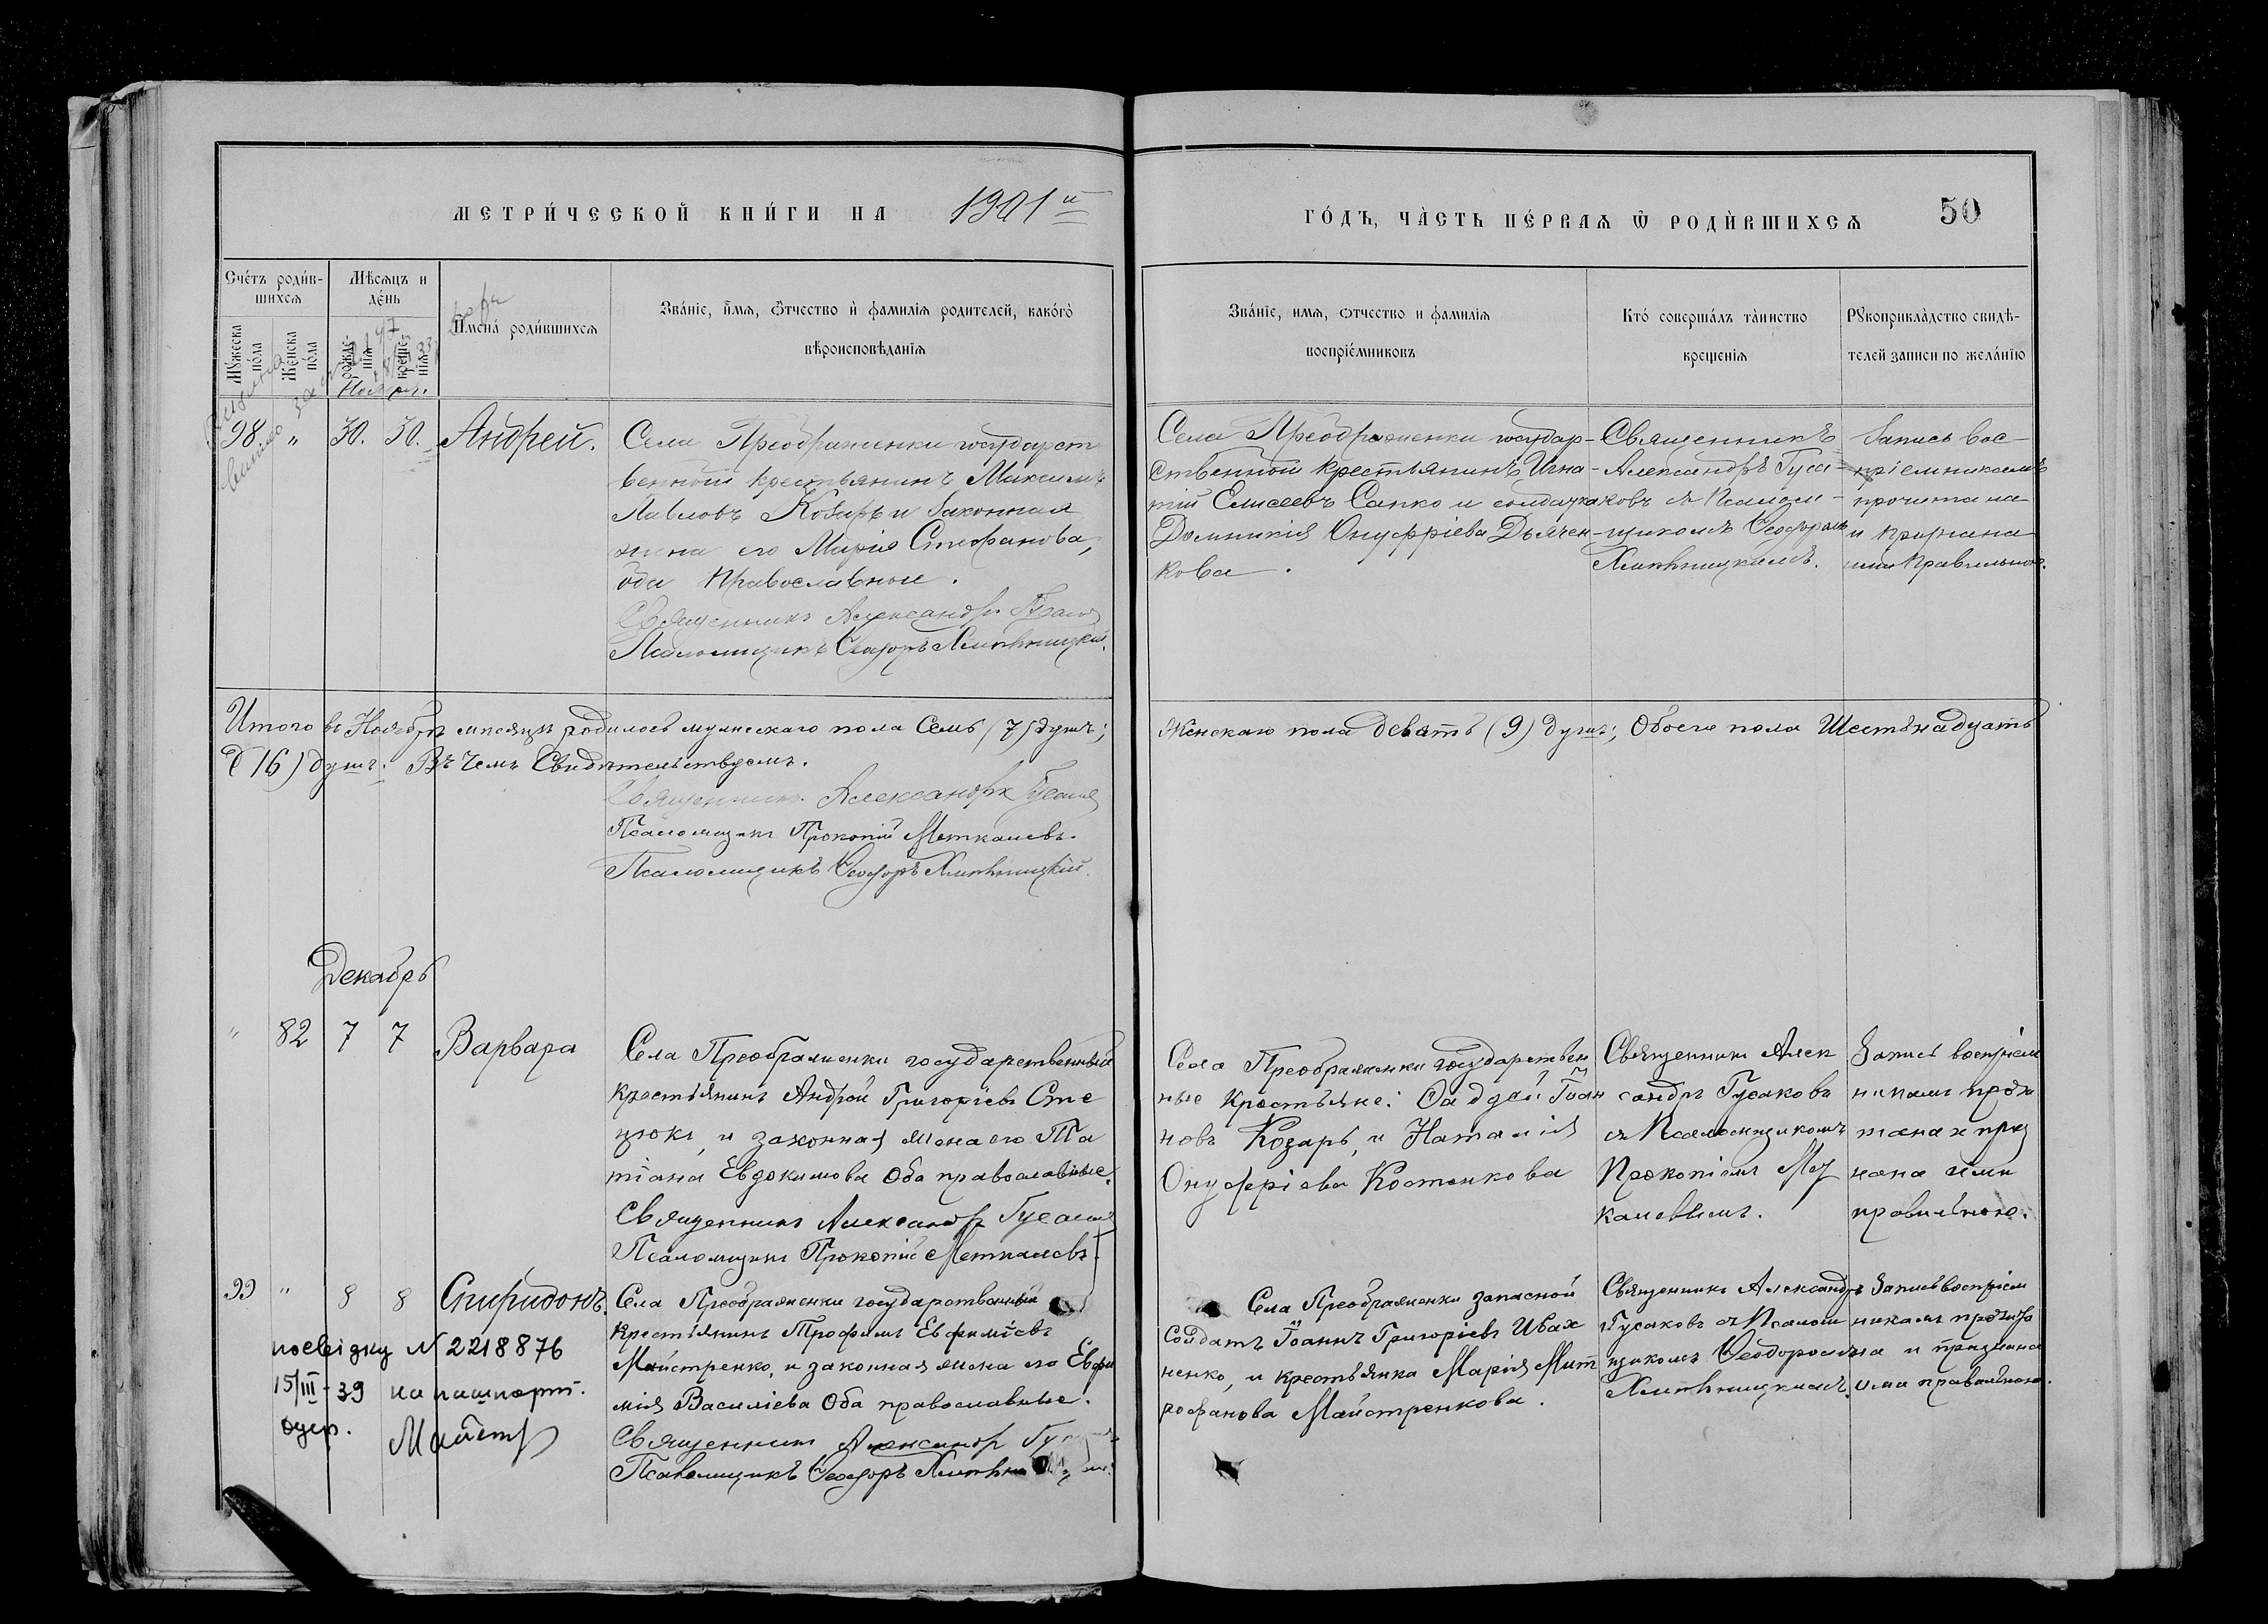 МЕТРИ́ЧЕСКОЙ КНИ́ГИ НА 1901 й
ГО́ДЪ, ЧА̀СТЬ ПЕ́РВАѦ Ѡ҆ РОДЍВШИХСѦ 50
Сче́тъ роди́в-
шихсѧ
Мѣ́сѧцъ и
де́нь
Имена́ роди́вшихсѧ
Зва́нїе, и́мѧ, ѻ҆́тчество и҆ фамилїѧ родителей, како́гѡ
вѣроисповѣ́данїѧ
Мꙋ́жеска
по́ла
Же́нска
по́ла
рожде-
нїѧ
креще-
нїѧ
Ноябрь.
Зва́нїе, имѧ, ѻтчество и фамилїѧ
воспрїе́мниковъ
Кто́ соверша́лъ та̀инство
креще́нїѧ
Рꙋкоприкла̀дство свидѣ́-
телей записи по жела́нїю
98. " 30. 30. Андрей.
Села Преображенки государст
венный крестьянинъ Максимъ
Павловъ Козарь и законная
жена его Марія Стефанова,
оба православные.
Священникъ Александръ Гусаковъ
Псаломщикъ Ѳеодоръ Хмѣльницкій.
Села Преображенки государ-
ственный крестьянинъ Игна-
тій Елисеевъ Сапко и солдатка
Домникія Онуфріева Дьячен-
кова.
Священникъ
Александръ Гуса-
ковъ съ Псалом-
щикомъ Ѳеодоромъ
Хмѣльницкимъ.
Запись вос-
пріемникамъ
прочитана
и признана
ими правильною.
Итого въ Ноябрѣ мѣсяцѣ родилось мужескаго пола Семь (7) душъ; Женскаго пола девять (9) душъ; Обоего пола Шестьнадцать
(16) душъ. Въ чемъ Свидѣтельствуемъ.
Священникъ Александръ Гусаковъ
Псаломщикъ Прокопій Меткалевъ.
Псаломщикъ Ѳеодоръ Хмѣльницкій.
Декабрь
" 82 7 7 Варвара
Села Преображенки государственный
крестьянинъ Андрей Григоріевъ Сте
цюкъ, и законная жена его Та
тіана Евдокимова Оба православные.
Священникъ Александръ Гусаковъ
Псаломщикъ Прокопій Меткалевъ.
Села Преображенки государствен
ные крестьяне: Ѳаддей Іоан
новъ Козарь, и Наталія
Онуфріева Костенкова
Священникъ Алек
сандръ Гусаковъ
съ Псаломщикомъ
Прокопіемъ Мет
калевымъ.
Запись воспріем
никамъ прочи
тана и приз
нана ими
правильною.
99 " 8 8 Спиридонъ.
Села Преображенки государственный
крестьянинъ Трофимъ Евфиміевъ
Майстренко, и законная жена его Евфи
мія Василіева Оба православные.
Священникъ Александръ
Псаломщикъ Ѳеодоръ
Села Преображенки запасной
Солдатъ Іоаннъ Григоріевъ Ивах
ненко, и крестьянка Марія Мит
рофанова Майстренкова.
Священникъ Александръ
Гусаковъ съ Псалом
щикомъ Ѳеодоромъ
Хмѣльницкимъ.
Запись воспріем
никамъ прочита
на и признана
ими правильною.
посвідку N 2218876
15/III-39 на пашпорт.
одер.